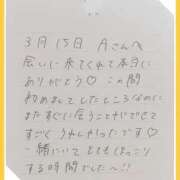 3月15日 Aさんへ
会いに来てくれて本当に
ありがとう♡ この間
初めましてしたところなのに
またすぐに会うことができて
すごくうれしかったです♡
一緒にいて とてもほっこり
する時間でした〜!!